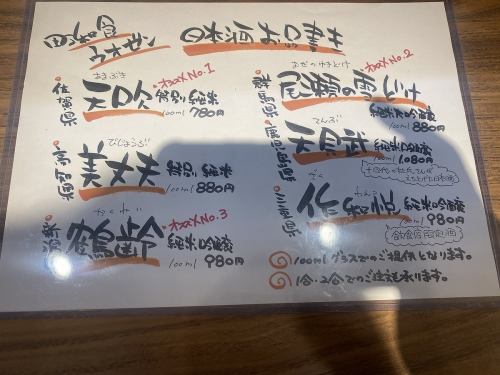 日本酒お品書き
佐賀県
あまぶき
天吹
オススメNo.1
特別純米
100ml 780円
びじょうぶ
美丈夫
特別純米
100ml 880円
かくれい
鶴齢
オススメNo.3
純米吟醸
100ml 980円
群馬県
おぜのゆきどけ
尾瀬の雪どけ
オススメNo.2
純米大吟醸
100ml 880円
鹿児島県
てんぶ
天賦
純米吟醸
100ml 1080円
三重県
ざく
作
純米吟醸
100ml 980円
飲食店限定酒
100mlグラスでのご提供となります。
1合・2合でのご注文も承ります。